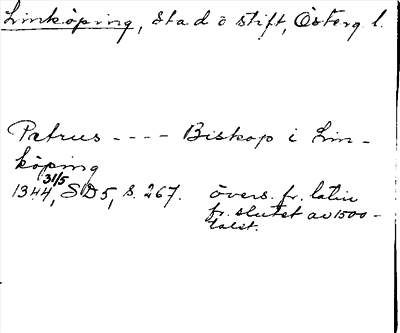 Linköping, Stad o stift, Österg l.
Petrus ---- Biskop i Lin-
köping
1344 31/5, SD5, s. 267. övers. fr. latin
fr. slutet av 1500-
talet.